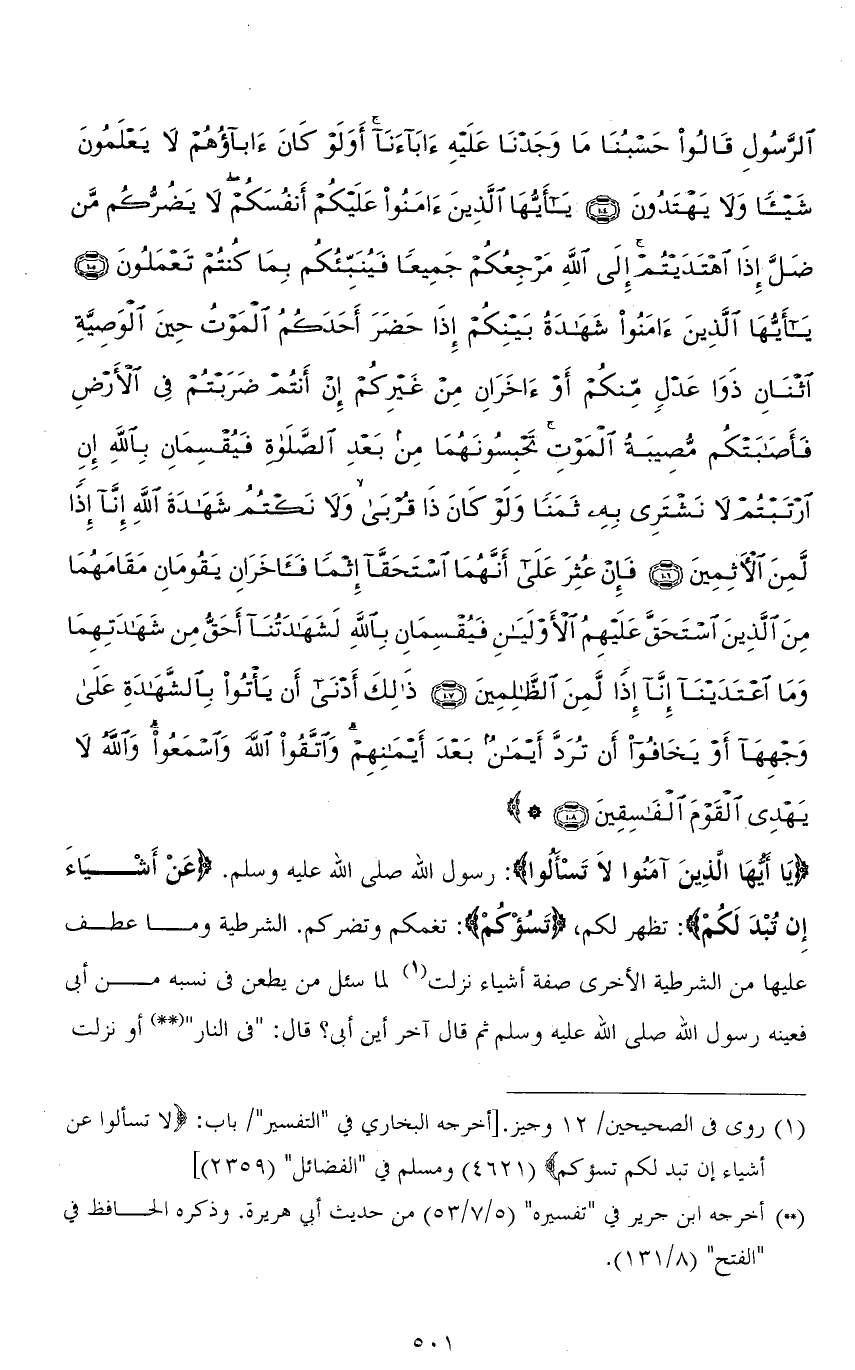 ٱلرَّسُولِ قَالُوا۟ حَسْبُنَا مَا وَجَدْنَا عَلَيْهِ ءَابَآءَنَآ ۚ أَوَلَوْ كَانَ ءَابَآؤُهُمْ لَا يَعْلَمُونَ
شَيْـًٔا وَلَا يَهْتَدُونَ ١٠٤ يَـٰٓأَيُّهَا ٱلَّذِينَ ءَامَنُوا۟ عَلَيْكُمْ أَنفُسَكُمْ ۖ لَا يَضُرُّكُم مَّن
ضَلَّ إِذَا ٱهْتَدَيْتُمْ ۚ إِلَى ٱللَّهِ مَرْجِعُكُمْ جَمِيعًا فَيُنَبِّئُكُم بِمَا كُنتُمْ تَعْمَلُونَ ١٠٥
يَـٰٓأَيُّهَا ٱلَّذِينَ ءَامَنُوا۟ شَهَـٰدَةُ بَيْنِكُمْ إِذَا حَضَرَ أَحَدَكُمُ ٱلْمَوْتُ حِينَ ٱلْوَصِيَّةِ
ٱثْنَانِ ذَوَا عَدْلٍ مِّنكُمْ أَوْ ءَاخَرَانِ مِنْ غَيْرِكُمْ إِنْ أَنتُمْ ضَرَبْتُمْ فِى ٱلْأَرْضِ
فَأَصَـٰبَتْكُم مُّصِيبَةُ ٱلْمَوْتِ ۚ تَحْبِسُونَهُمَا مِنۢ بَعْدِ ٱلصَّلَوٰةِ فَيُقْسِمَانِ بِٱللَّهِ إِنِ
ٱرْتَبْتُمْ لَا نَشْتَرِى بِهِۦ ثَمَنًا وَلَوْ كَانَ ذَا قُرْبَىٰ ۙ وَلَا نَكْتُمُ شَهَـٰدَةَ ٱللَّهِ إِنَّآ إِذًا
لَّمِنَ ٱلْـَٔاثِمِينَ ١٠٦ فَإِنْ عُثِرَ عَلَىٰٓ أَنَّهُمَا ٱسْتَحَقَّآ إِثْمًا فَـَٔاخَرَانِ يَقُومَانِ مَقَامَهُمَا
مِنَ ٱلَّذِينَ ٱسْتَحَقَّ عَلَيْهِمُ ٱلْأَوْلَيَـٰنِ فَيُقْسِمَانِ بِٱللَّهِ لَشَهَـٰدَتُنَآ أَحَقُّ مِن شَهَـٰدَتِهِمَا
وَمَا ٱعْتَدَيْنَآ إِنَّآ إِذًا لَّمِنَ ٱلظَّـٰلِمِينَ ١٠٧ ذَٰلِكَ أَدْنَىٰٓ أَن يَأْتُوا۟ بِٱلشَّهَـٰدَةِ عَلَىٰ
وَجْهِهَآ أَوْ يَخَافُوٓا۟ أَن تُرَدَّ أَيْمَـٰنٌۢ بَعْدَ أَيْمَـٰنِهِمْ ۗ وَٱتَّقُوا۟ ٱللَّهَ وَٱسْمَعُوا۟ ۗ وَٱللَّهُ لَا
يَهْدِى ٱلْقَوْمَ ٱلْفَـٰسِقِينَ ١٠٨ * ﴾
﴿يَا أَيُّهَا الَّذِينَ آمَنُوا لاَ تَسْأَلُوا﴾: رسول الله صلى الله عليه وسلم. ﴿عَنْ أَشْـــيَاءَ
إِن تُبْدَ لَكُمْ﴾: تظهر لكم، ﴿تَسُؤْكُمْ﴾: تغمكم وتضركم. الشرطية ومـــا عطـف
عليها من الشرطية الأخرى صفة أشياء نزلت(١) لما سئل من يطعن فى نسبه مـــن أبى
فعينه رسول الله صلى الله عليه وسلم ثم قال آخر أين أبى؟ قال: "فى النار"(**) أو نزلت
(١) روى فى الصحيحين/ ١٢ وجيز.[أخرجه البخاري في "التفسير"/ باب: ﴿لا تسألوا عن
أشياء إن تبد لكم تسؤكم﴾ (٤٦٢١) ومسلم في "الفضائل" (٢٣٥٩)]
(**) أخرجه ابن جرير في "تفسيره" (٥٣/٧/٥) من حديث أبي هريرة. وذكره الحـــافظ في
"الفتح" (١٣١/٨).
٥٠١